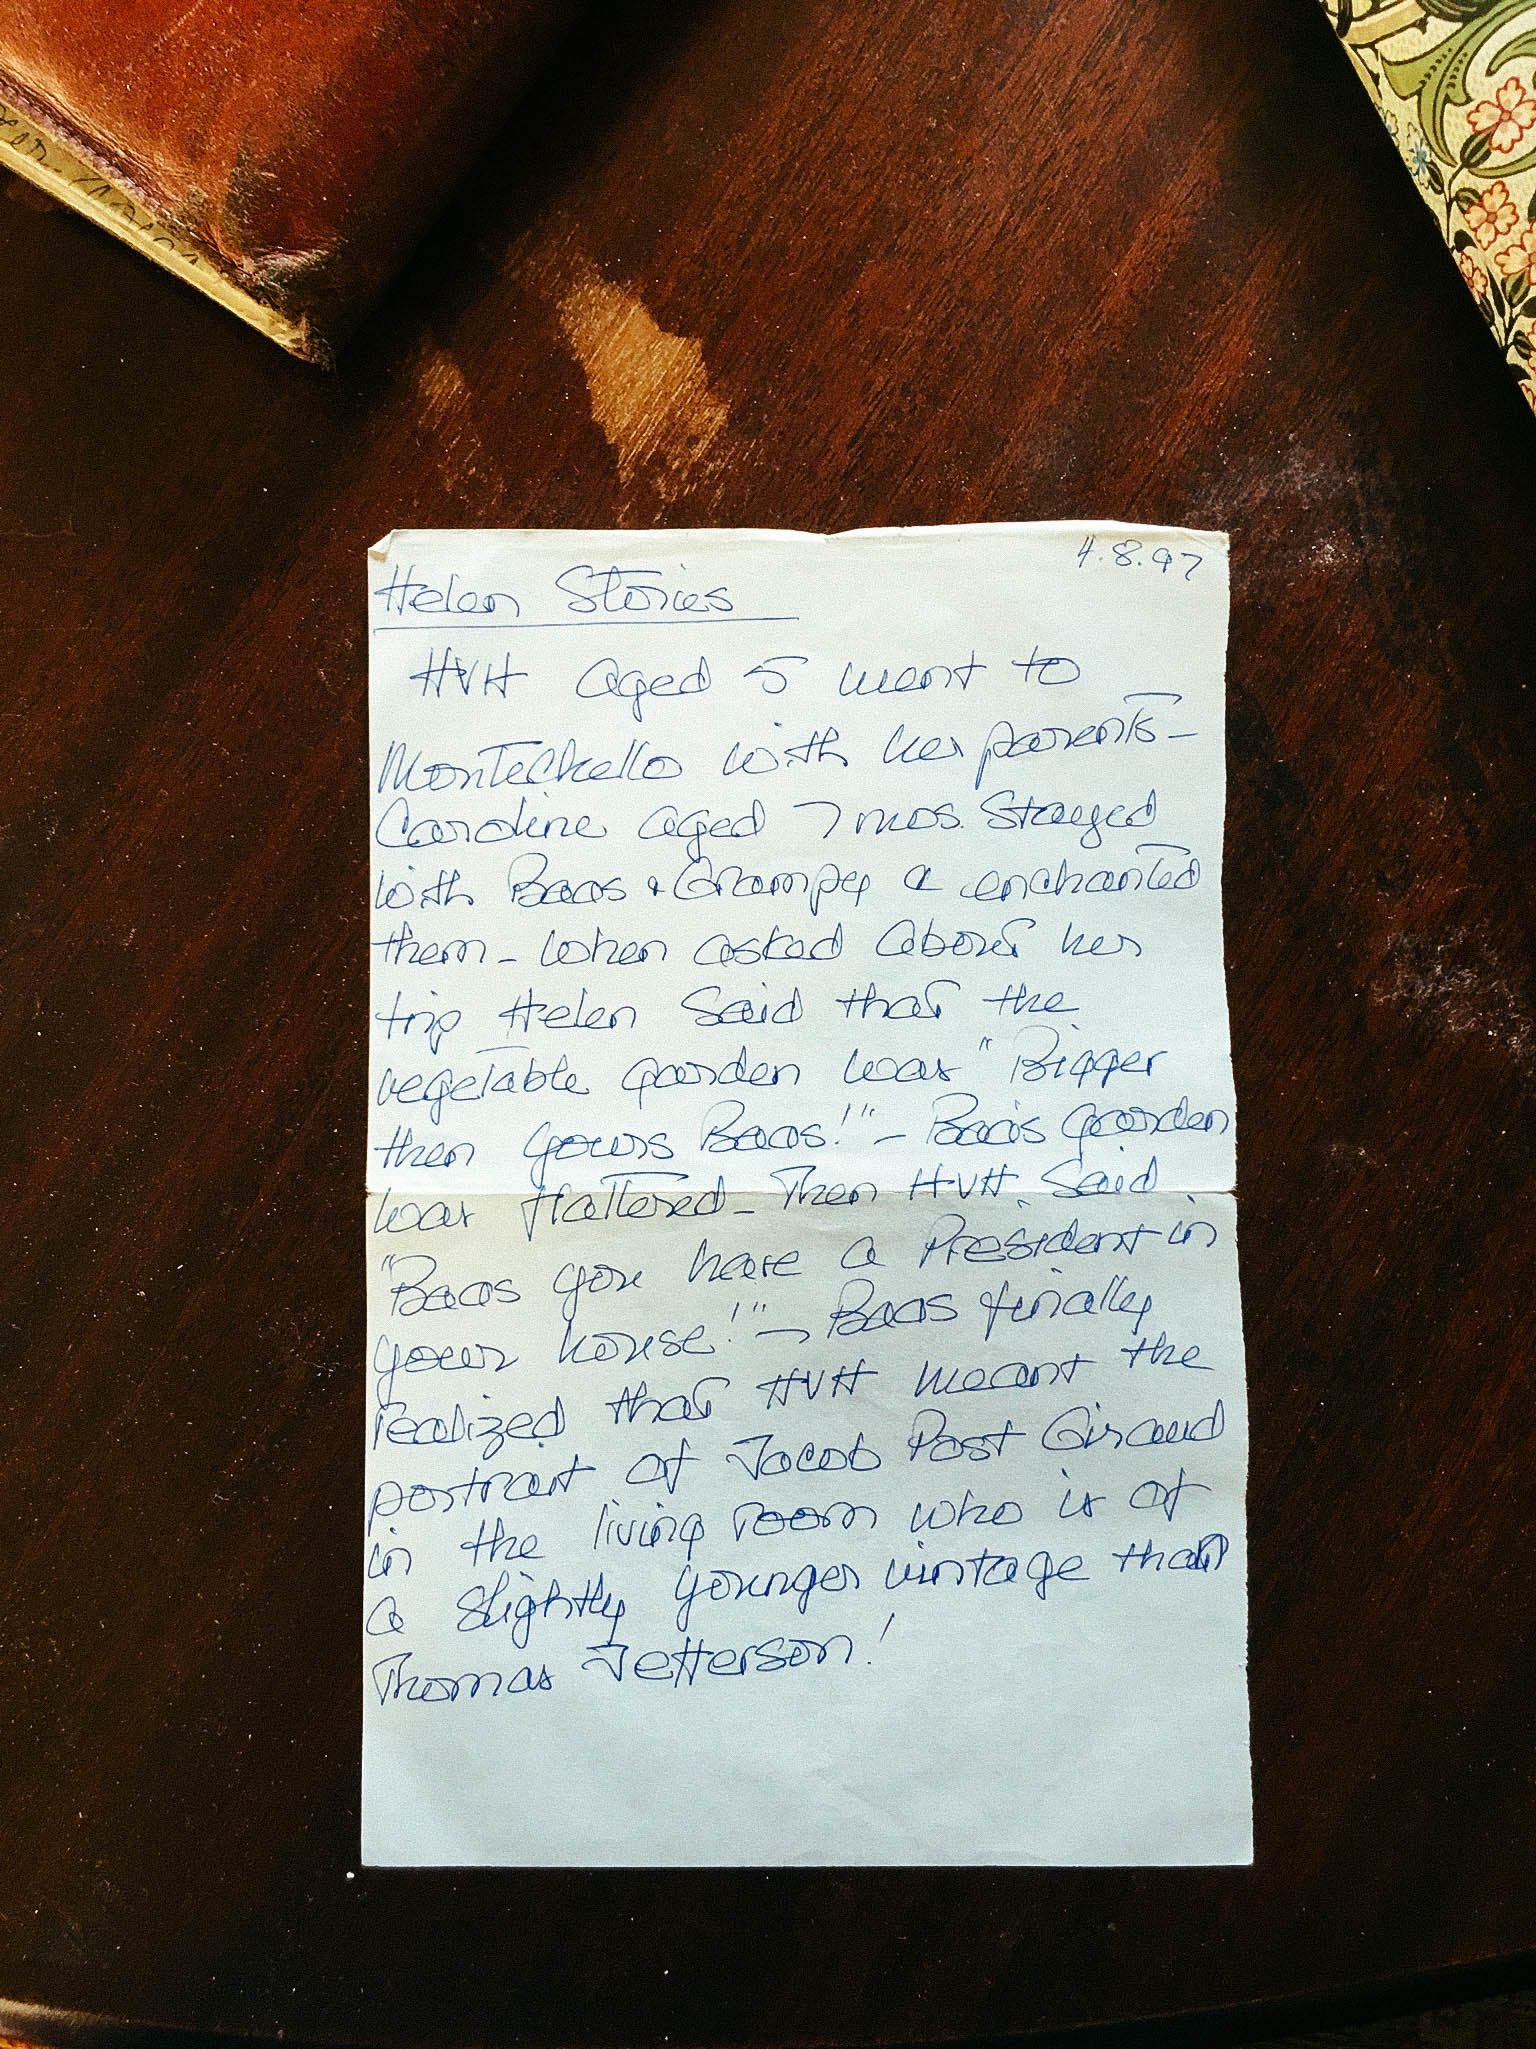 4.8.97
Helen Stories
HVH aged 5 went to
Montechello with her parents –
Caroline aged 7 mos. Stayed
with Baas & Grampy & enchanted
them – When asked about her
trip Helen Said that the
vegetable garden was "Bigger
then yours Baas!" – Baas garden
was flattered – Then HVH Said
"Baas you have a President in
your house!" – Baas finally
realized that HVH meant the
portrait of Jacob Post Giraud
in the living room who is of
a slightly younger vintage than
Thomas Jefferson!